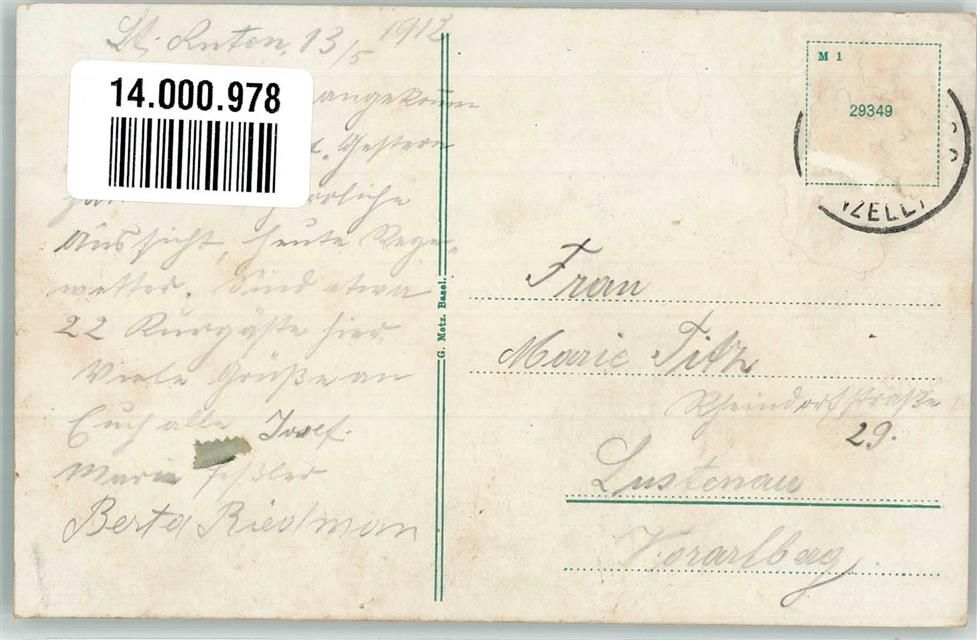 St. Anton, 13/5 1912
14.000.978
angekomm
Gestern
herrliche
Aussicht, heute Rege-
wetter. Sind etwa
22 Kurgäste hier.
Viele Grüße an
Euch alle Josef.
Maria Feßler
Berta Riedman
G. Metz, Basel.
M 1
29349
NZELL
Frau
Marie Fitz
Rheindorfstraße
29.
Lustenau
Vorarlbag